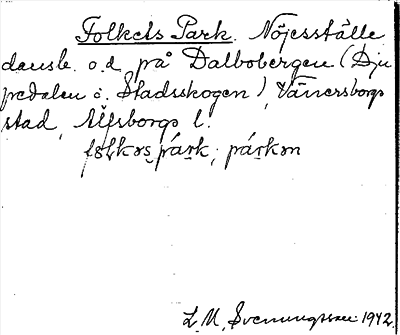 Folkets Park. Nöjesställe
dansb. o.d. på Dalbobergen (Dju
pedalen i Stadsskogen), Vänersborgs
stad, Älfsborgs l.
fålkəs párk; párkən
L. M. Svenungsson 1942.